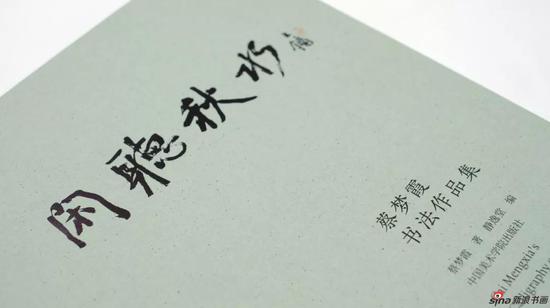 閑聽秋水
蔡梦霞
书法作品集
蔡梦霞 著 静逸堂 编
中国美术学院出版社
Mengxia's
sina 新浪书画